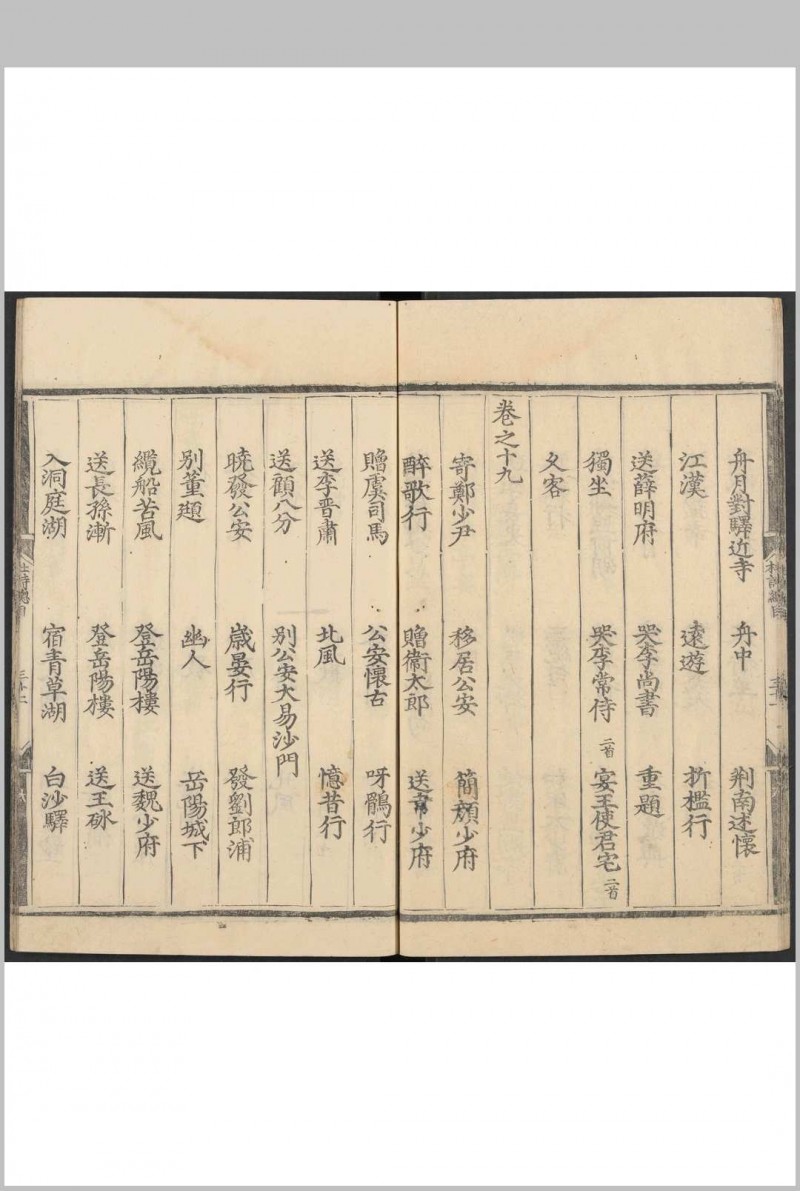 舟月對驛近寺 舟中 荆南述懷
江漢 遠遊 折檻行
送薛明府 哭李尚書 重題
獨坐 哭李常侍二首 宴王使君宅二首
久客
卷之十九
寄鄭少尹 移居公安 簡顔少府
醉歌行 贈衛太郎 送韋少府
贈虞司馬 公安懷古 呀鶻行
送李晋肅 北風 憶昔行
送顧八分 別公安大易沙門
曉發公安 歲晏行 發劉郎浦
別董題 幽人 岳陽城下
纜船苦風 登岳陽樓 送魏少府
送長孫漸 登岳陽樓 送王砅
入洞庭湖 宿青草湖 白沙驛